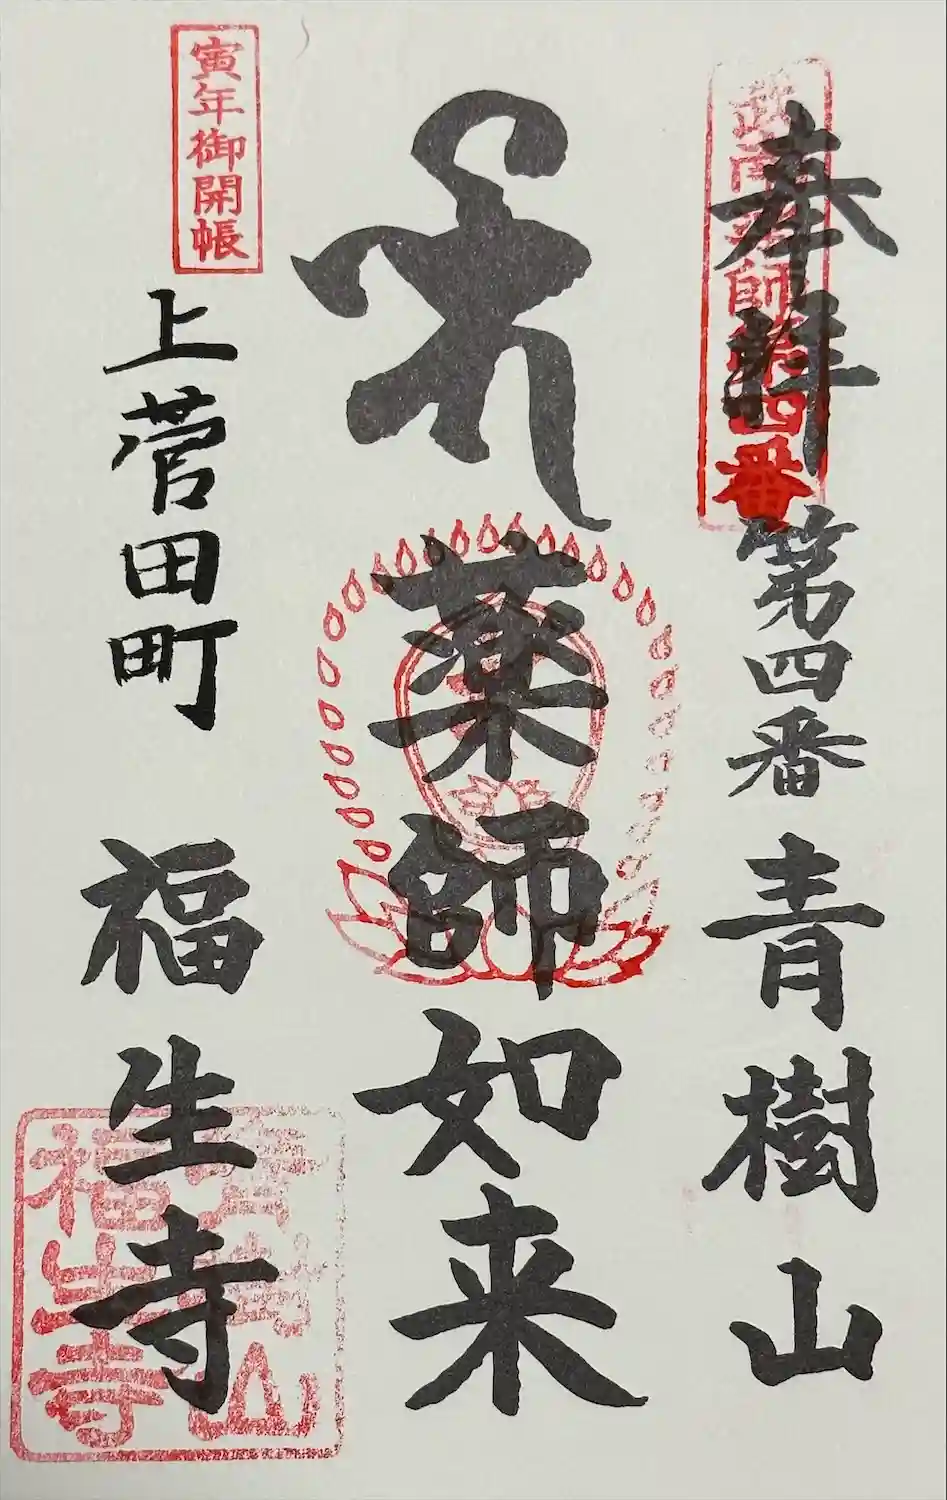 奉拝 第四番 青樹山
武南薬師第四番
薬師如来
寅年御開帳
上菅田町 福生寺
青樹山
福生寺